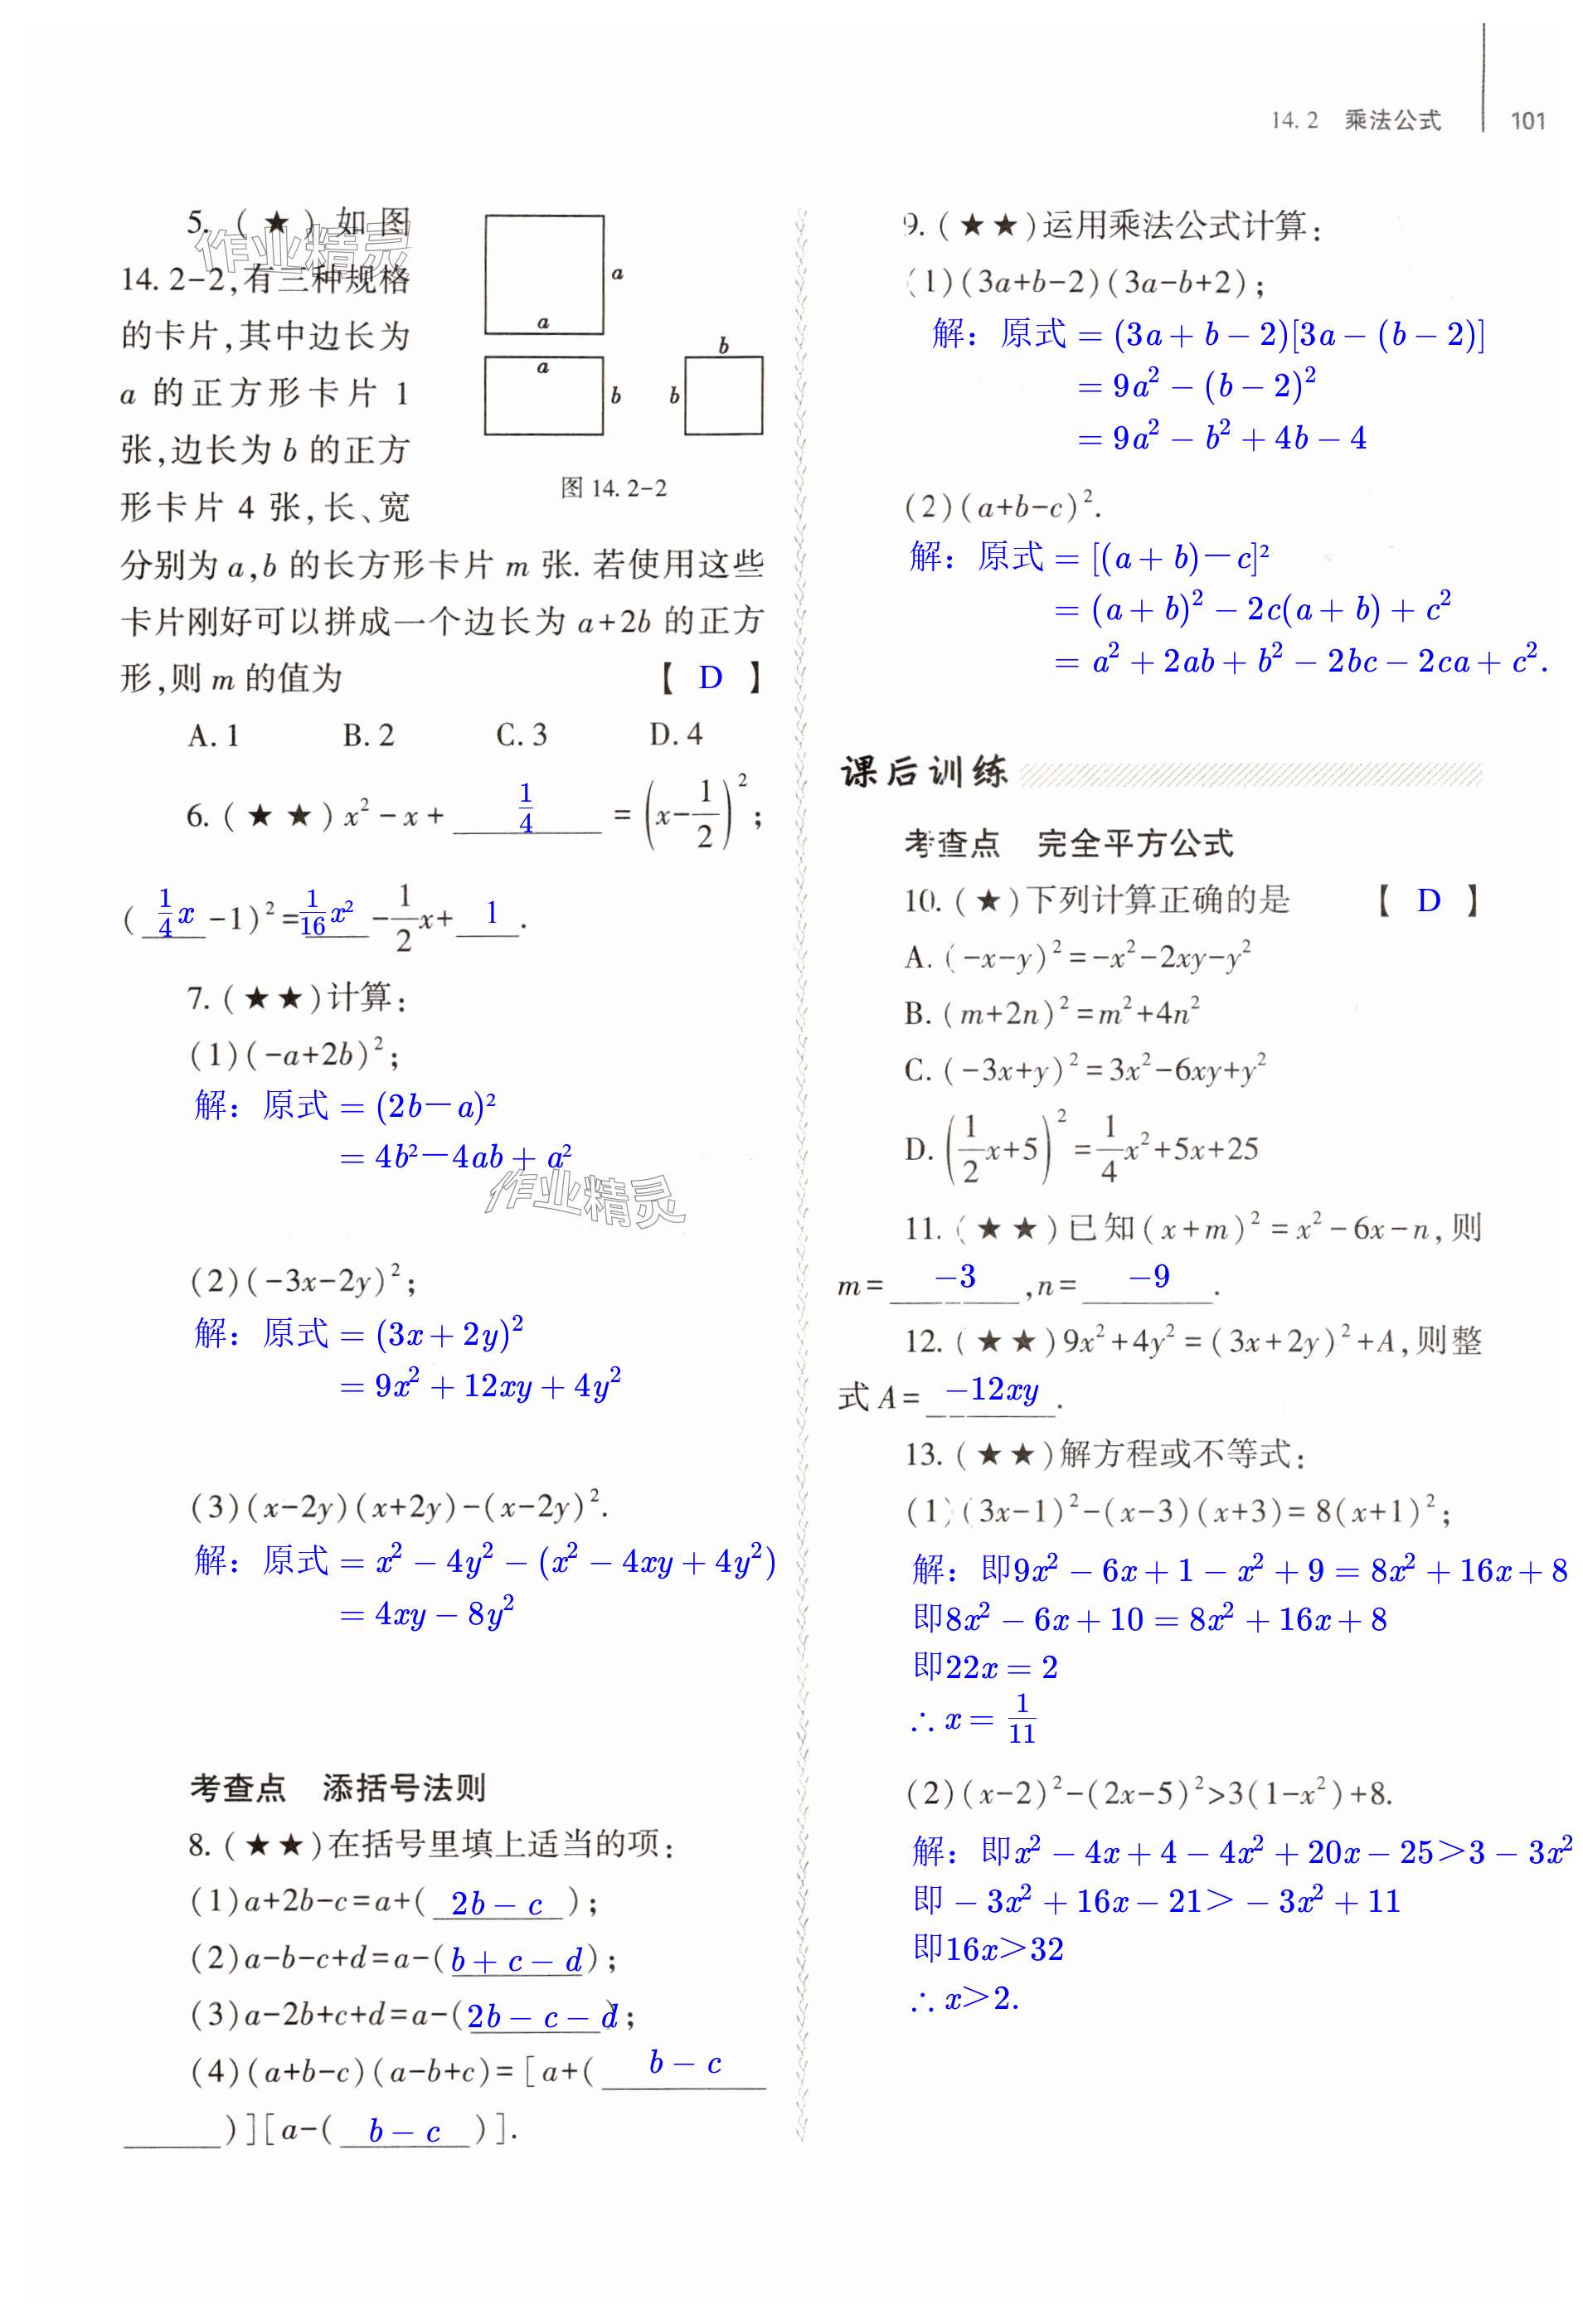 14.2 乘法公式 101
5. (★)如图
14.2-2,有三种规格
的卡片,其中边长为
a 的正方形卡片 1
张,边长为 b 的正方
形卡片 4 张,长、宽
分别为 a,b 的长方形卡片 m 张. 若使用这些
卡片刚好可以拼成一个边长为 a+2b 的正方
形,则 m 的值为 【 D 】
a
a
a
b
b
b
图 14.2-2
A. 1 B. 2 C. 3 D. 4
6. (★★) x² - x + 1/4 = (x - 1/2)²;
( 1/4 x -1)² = 1/16 x² - 1/2 x + 1 .
7. (★★)计算:
(1)(-a+2b)²;
解:原式 = (2b-a)²
= 4b²-4ab+a²
(2)(-3x-2y)²;
解:原式 = (3x+2y)²
= 9x²+12xy+4y²
(3)(x-2y)(x+2y)-(x-2y)².
解:原式 = x²-4y²-(x²-4xy+4y²)
= 4xy-8y²
考查点 添括号法则
8. (★★)在括号里填上适当的项:
(1)a+2b-c=a+( 2b-c );
(2)a-b-c+d=a-( b+c-d );
(3)a-2b+c+d=a-( 2b-c-d );
(4)(a+b-c)(a-b+c)=[a+( b-c
)][a-( b-c )].
作业精灵
作业精灵
9. (★★)运用乘法公式计算:
(1)(3a+b-2)(3a-b+2);
解:原式 = (3a+b-2)[3a-(b-2)]
= 9a²-(b-2)²
= 9a²-b²+4b-4
(2)(a+b-c)².
解:原式 = [(a+b)-c]²
= (a+b)²-2c(a+b)+c²
= a²+2ab+b²-2bc-2ca+c².
课后训练
考查点 完全平方公式
10. (★)下列计算正确的是 【 D 】
A. (-x-y)²=-x²-2xy-y²
B. (m+2n)²=m²+4n²
C. (-3x+y)²=3x²-6xy+y²
D. (1/2 x+5)²=1/4 x²+5x+25
11. (★★)已知(x+m)²=x²-6x-n,则
m= -3 ,n= -9 .
12. (★★)9x²+4y²=(3x+2y)²+A,则整
式 A= -12xy .
13. (★★)解方程或不等式:
(1)(3x-1)²-(x-3)(x+3)=8(x+1)²;
解:即9x²-6x+1-x²+9=8x²+16x+8
即8x²-6x+10=8x²+16x+8
即22x=2
∴x=1/11
(2)(x-2)²-(2x-5)²>3(1-x²)+8.
解:即x²-4x+4-4x²+20x-25>3-3x²
即-3x²+16x-21>-3x²+11
即16x>32
∴x>2.